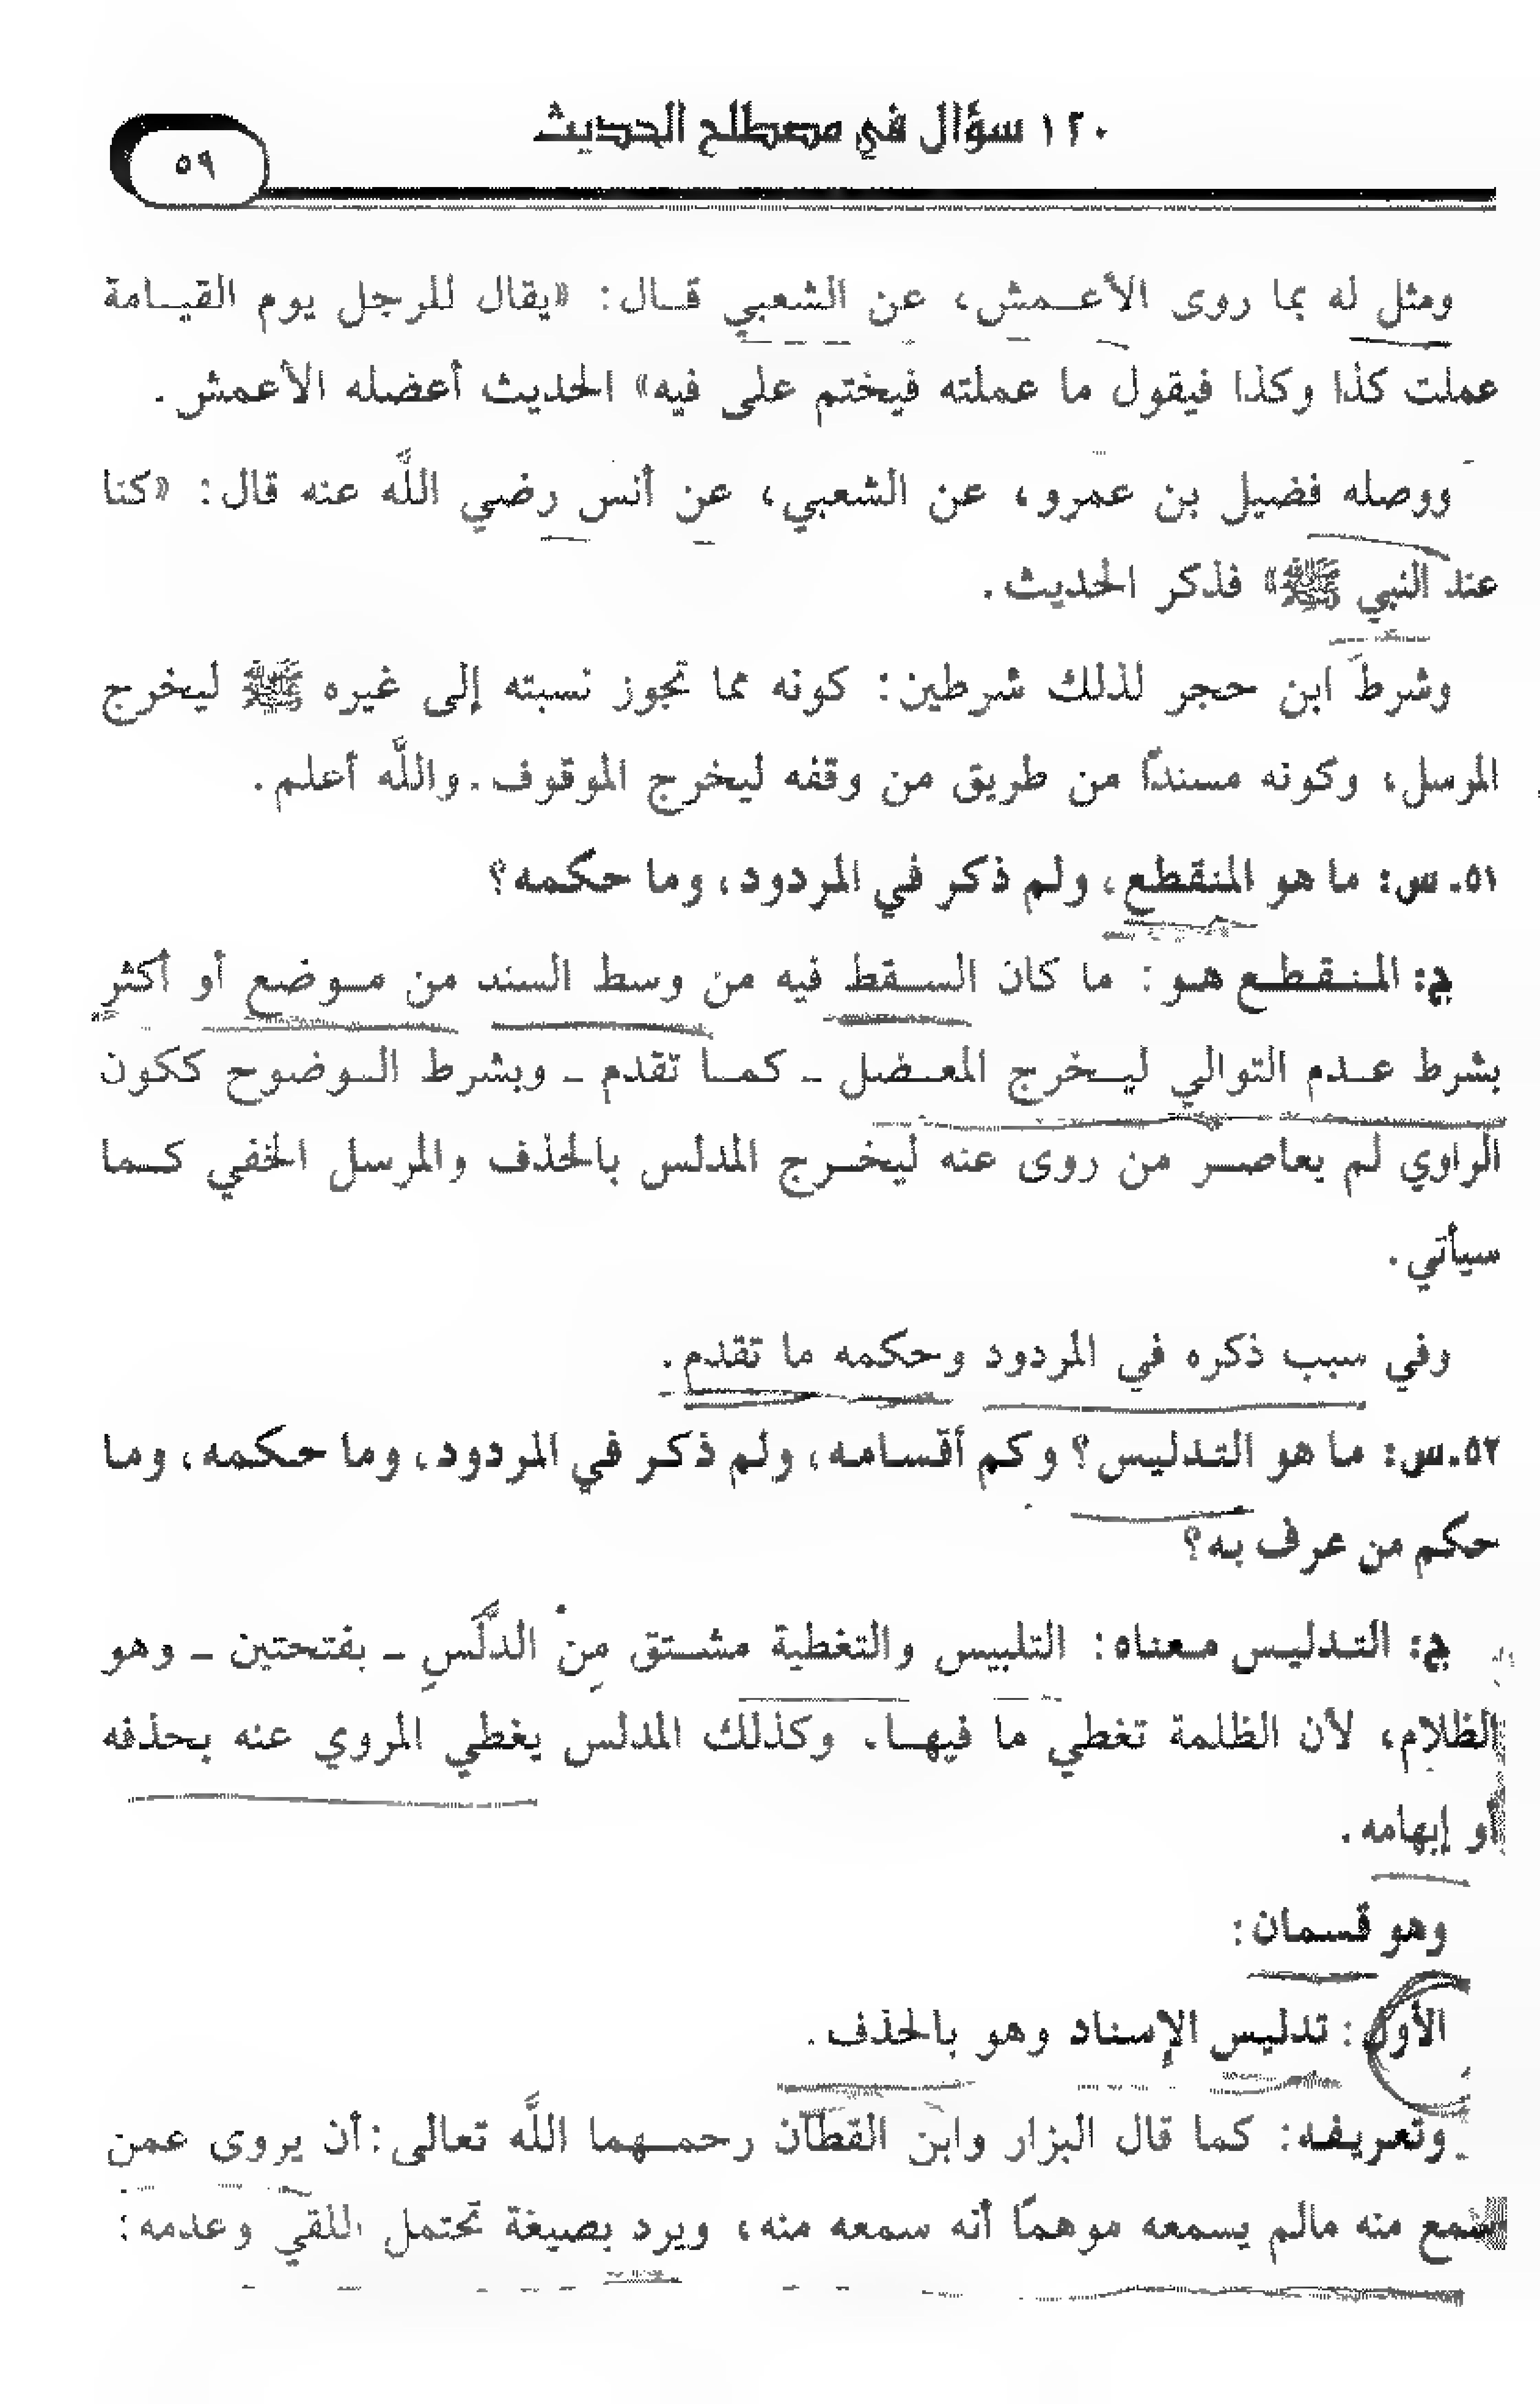 ١٢٠ سؤال في مصطلح الحديث
٥٩
ومثل له بما روى الأعمش، عن الشعبي قال: «يقال للرجل يوم القيامة
عملت كذا وكذا فيقول ما عملته فيختم على فيه» الحديث أعضله الأعمش.
ووصله فضيل بن عمرو، عن الشعبي، عن أنس رضي اللَّه عنه قال: «كنا
عند النبي ﷺ» فذكر الحديث.
وشرط ابن حجر لذلك شرطين: كونه مما تجوز نسبته إلى غيره ﷺ ليخرج
المرسل، وكونه مسندًا من طريق من وقفه ليخرج الموقوف. واللَّه أعلم.
٥١. س: ما هو المنقطع، ولم ذكر في المردود، وما حكمه؟
ج: المنقطع هو: ما كان السقط فيه من وسط السند من موضع أو أكثر
بشرط عدم التوالي ليخرج المعضل ـ كما تقدم ـ وبشرط الوضوح ككون
الراوي لم يعاصر من روى عنه ليخرج المدلس بالحذف والمرسل الخفي كما
سيأتي.
وفي سبب ذكره في المردود وحكمه ما تقدم.
٥٢. س: ما هو التدليس؟ وكم أقسامه، ولم ذكر في المردود، وما حكمه، وما
حكم من عرف به؟
ج: التدليس معناه: التلبيس والتغطية مشتق مِنْ الدلَّسِ ـ بفتحتين ـ وهو
الظلام، لأن الظلمة تغطي ما فيها، وكذلك المدلس يغطي المروي عنه بحذفه
أو إبهامه.
وهو قسمان:
الأول: تدليس الإسناد وهو بالحذف.
وتعريفه: كما قال البزار وابن القطان رحمهما اللَّه تعالى: أن يروى عمن
سمع منه مالم يسمعه موهمًا أنه سمعه منه، ويرد بصيغة تحتمل اللقي وعدمه: